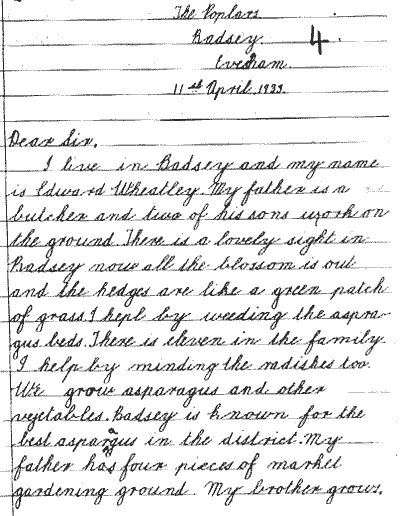 The Poplars
Badsey. 4.
Evesham.
11st April. 1933.
Dear Sir.
I live in Badsey and my name
is Edward Wheatley. My father is a
butcher and two of his sons work on
the ground. There is a lovely sight in
Badsey now all the blossom is out
and the hedges are like a green patch
of grass. I hepl by weeding the aspra-
gus beds. There is eleven in the family.
I help by minding the radishes too.
We grow asparagus and other
vegetables. Badsey is known for the
best asparagus in the district. My
father has four pieces of market
gardening ground. My brother grows.